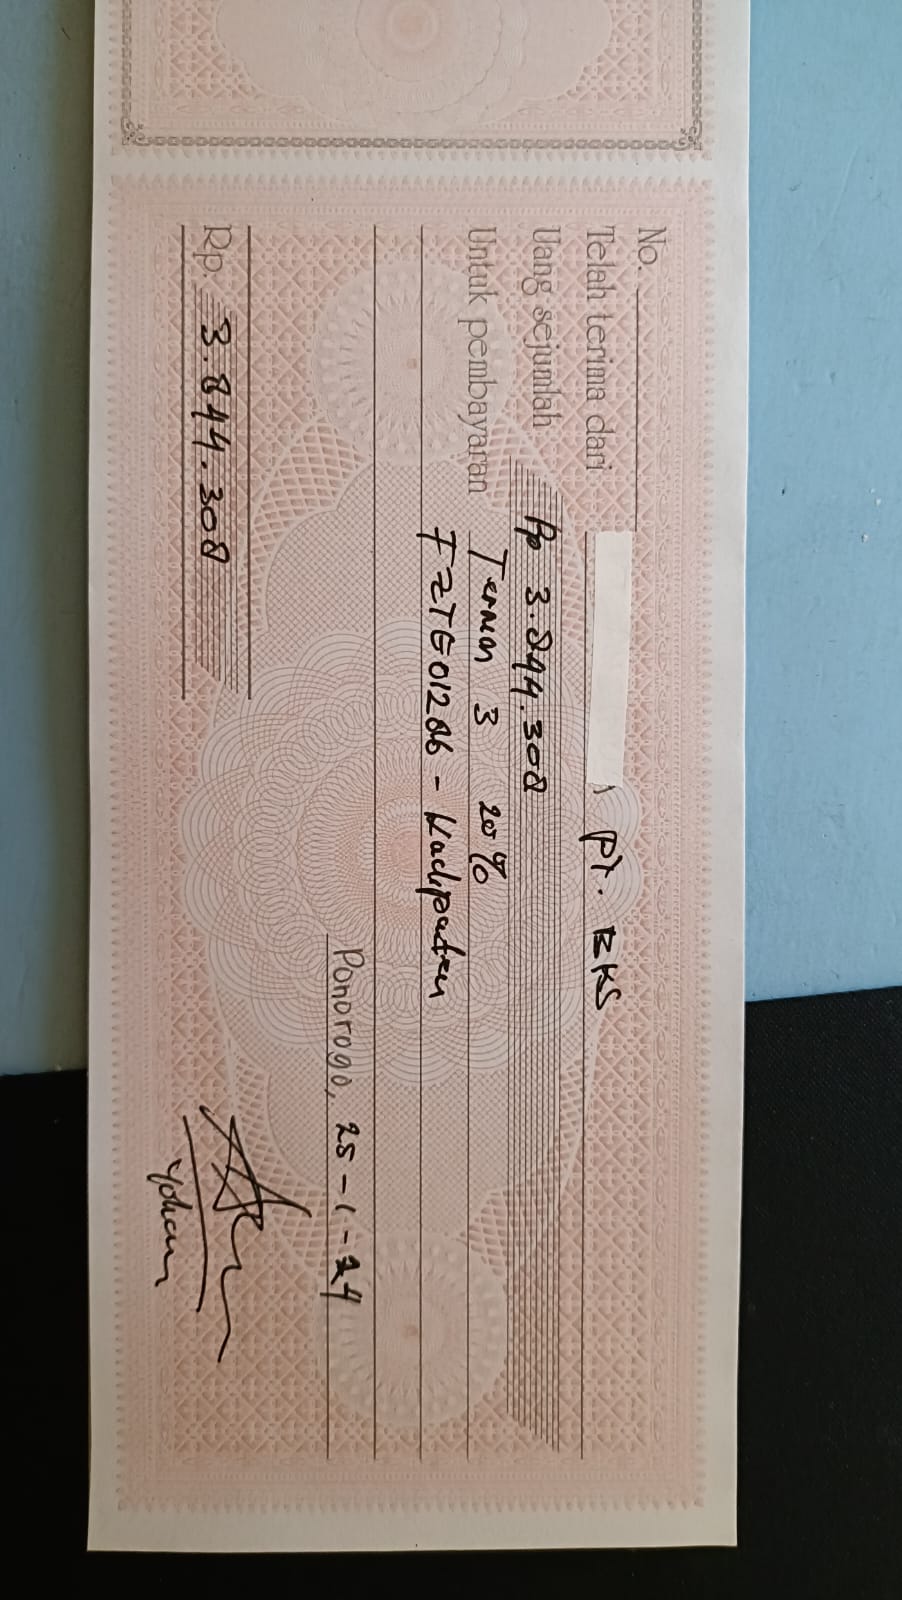 No.
Telah terima dari PT. BKS
Uang sejumlah Rp 3.844.308
Untuk pembayaran Termin 3 20%
- Kadipaten
Ponorogo, 25-1-24
Rp. 3.844.308
Yohan